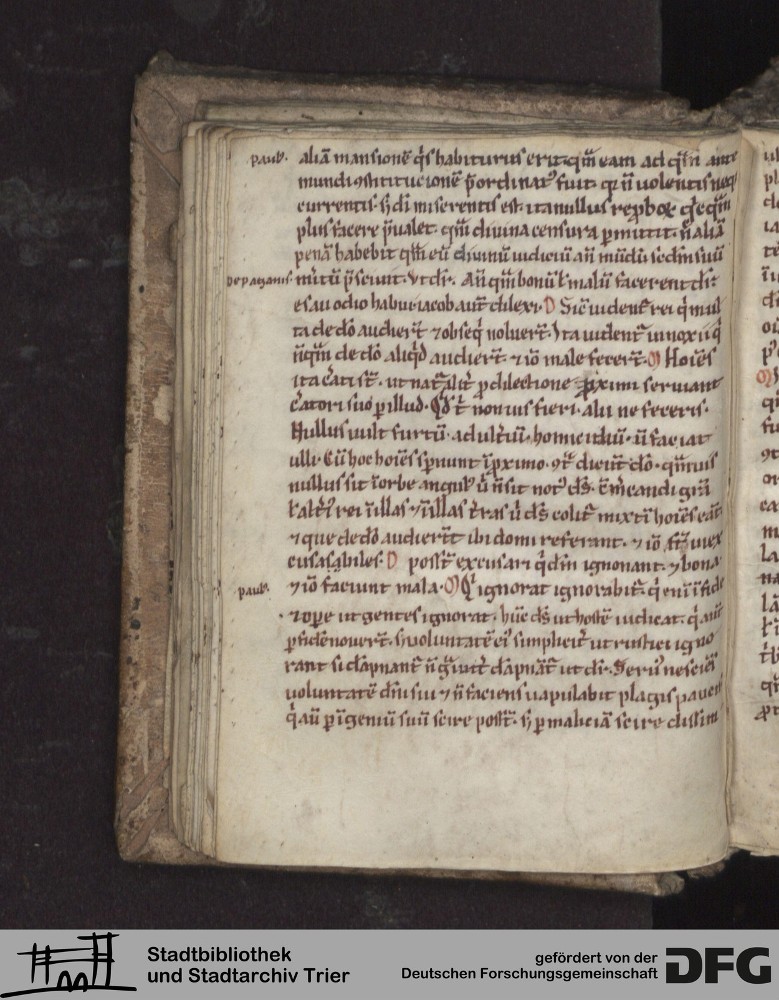 paul'. aliā mansionē q̇s habiturus erit. qm̄ eam ad qm̄ ante
mundi ꝯstitucionē p̄ordinat' fuit. qꝛ n̄ uolentis neq;
currentis. sꝫ di miserentis est. ita nullus reprobox
plus facere p̄ualet. qm̄ diuina censura pmittit. n̄ aliā
penā habebit qm̄ eū diuinū iudiciū an̄ mūdū scdm suū
De paganis. mitū p̄sciuit. Vt dr̄. An̄ qm̄ bonū ł malū facerent dr̄
esau odio habui iacob aut̄ dilexi. D Sic̄ uident̄ rei q̇ mul
ta de dō audiert̄ ⁊ obseq̇ noluert̄. Ita uident̄ innoxii q̇
nūqm̄ de dō aliq̇d audiert̄ ⁊ iō male fecert̄. M Hoīes
ita c̄ati st̄. ut nat̄alit̄ p dilectione proximi seruiant
c̄atori suo p illud. Qd̄ t' non uis fieri. alii ne feceris.
Nullus uult furtū. adult̄iū. homicidiū. ū faciat
ulli. Cū hoc hoīes spnunt ī proximo. ꝯt̄ dicunt̄ dō. qm̄uis
nullus sit ī orbe angul' ū n̄ sit not' ds̄. t̄m eandi grā
ł alt̄i' rei ī illas ⁊ ī illas t̄ras ū ds̄ colit̄ mixti hoīes eāt
⁊ que de dō audiert̄ ibi domi referant. ⁊ iō st̄ inex
cusasabiles. D post̄ excusari q̇ dm̄ ignorant. ⁊ bona
paul'. ⁊ iō faciunt mala. M Q' ignorat ignorabit̄. q̇ eni ī fide
⁊ ope ut gentes ignorat. hūc ds̄ ut hostē iudicat. q̇ aut̄
p fidē nouert̄. sꝫ uoluntatē ei' simplicit̄ ut rustici igno
rant si dāpnant̄ n̄ g̊uit̄ dāpnāt̄ ut dr̄. Seru' nesciēs
uoluntatē dn̄i sui ⁊ n̄ faciens uapulabit plagis paucis
q̇ aū p īgeniū suū scire post̄. sꝫ p maliciā scire dissim
Stadtbibliothek
und Stadtarchiv Trier
gefördert von der
Deutschen Forschungsgemeinschaft DFG